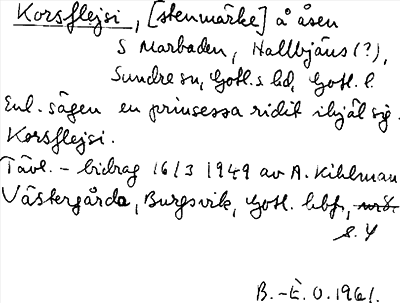 Korsflejsi, [stenmärke] å åsen
S Marbaden, Hallbjäns (?),
Sundre sn, Gotl. s hd, Gotl. l.
Enl. sägen en prinsessa ridit ihjäl sig.
Korsflejsi.
Tävl. - bidrag 16/3 1949 av A. Kihlman
Västergårda, Burgsvik, Gotl. hbf,
s. 4
B.-E. O. 1961.